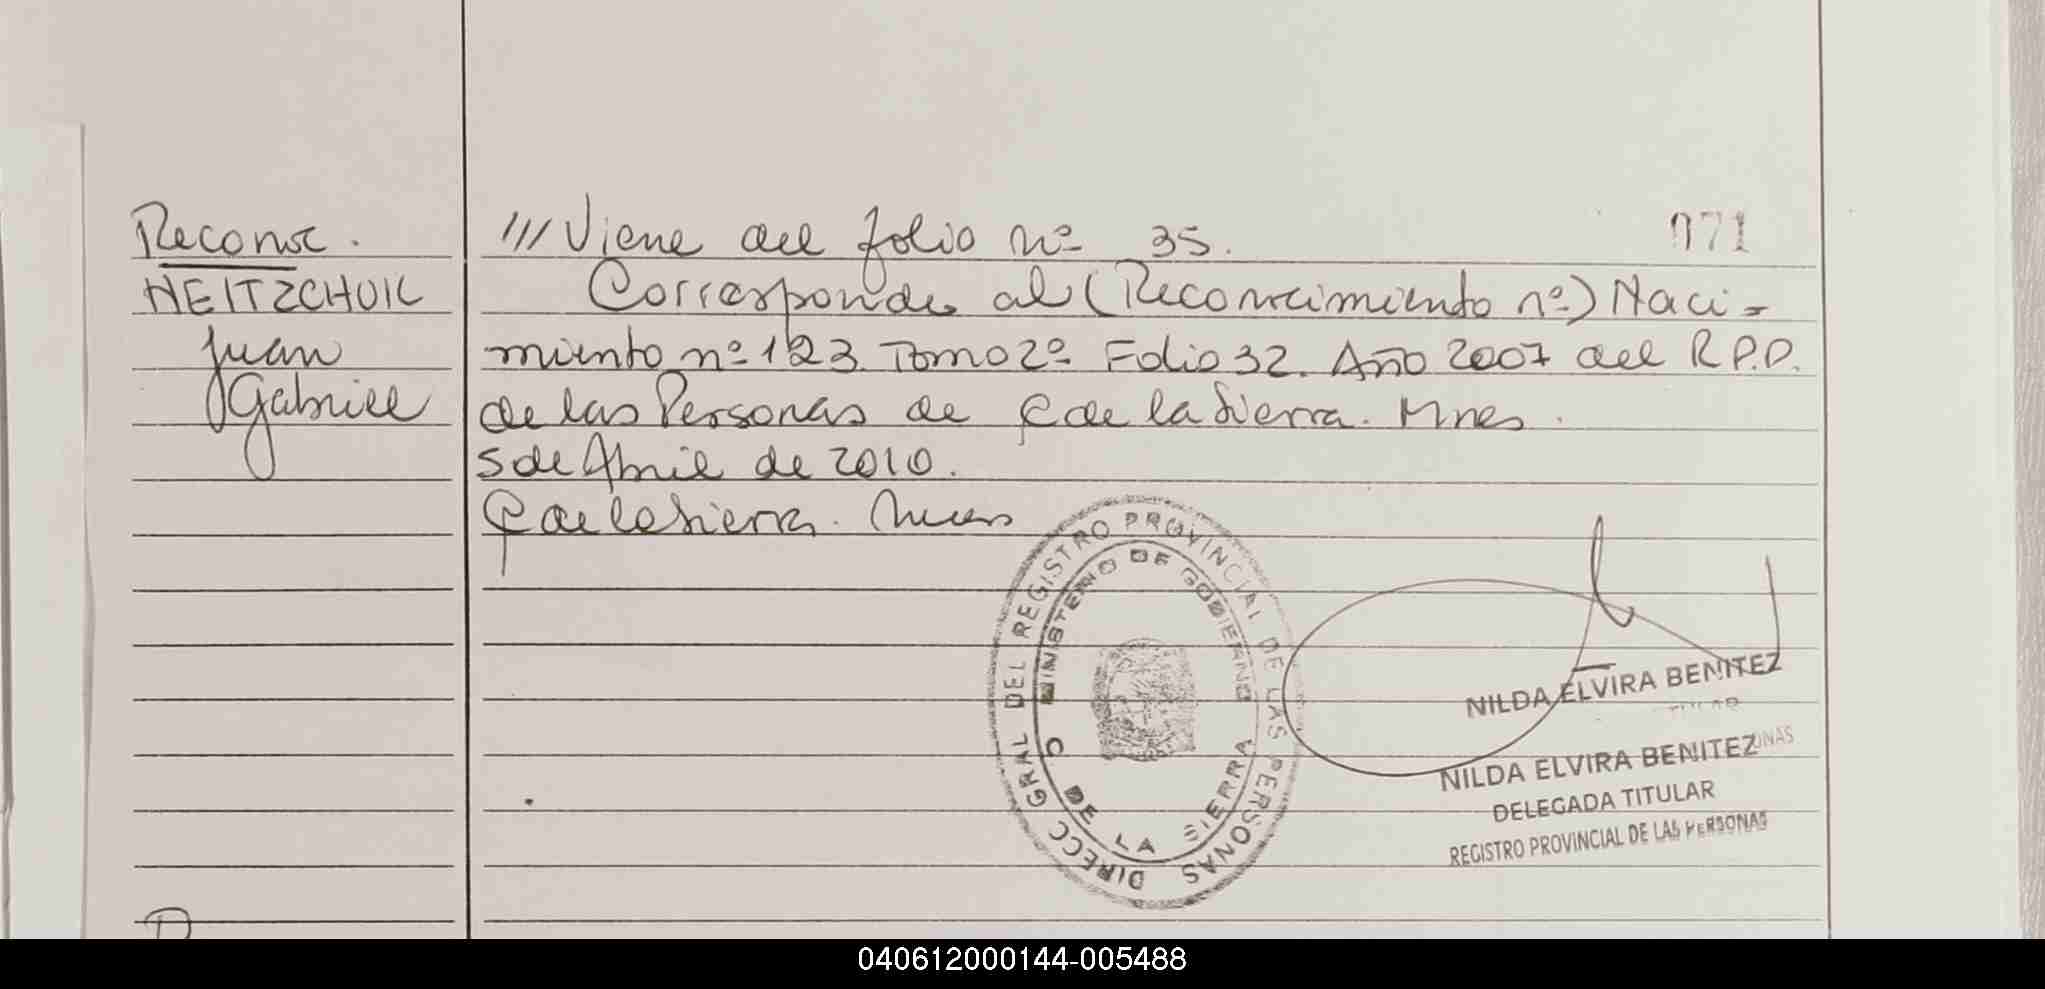 Reconoc.
NEITZCHUIL
Juan
Gabriel
/// Viene del folio nº 35.
071
Corresponde al (Reconocimiento nº) Naci-
miento nº 123. Tomo 2º Folio 32. Año 2007 del R.P.P.
de las Personas de C de la Sierra. Mnes.
5 de Abril de 2010.
C de la Sierra. Mnes
DIRECC GRAL DEL REGISTRO PROVINCIAL DE LAS PERSONAS
MINISTERIO DE GOBIERNO
C DE LA SIERRA
NILDA ELVIRA BENITEZ
NILDA ELVIRA BENITEZ
DELEGADA TITULAR
REGISTRO PROVINCIAL DE LAS PERSONAS
040612000144-005488